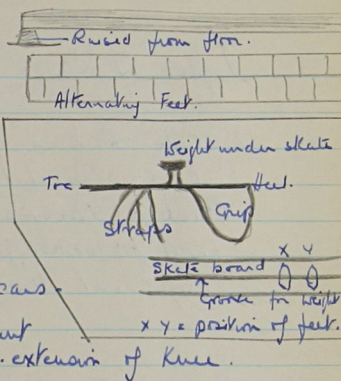 Raised from floor.
Alternating Feet.
Weight under skate
Toe
Heel.
Grip
Straps
X Y
Skate board
Groove for weight
X Y = position of feet.
extension of Knee.